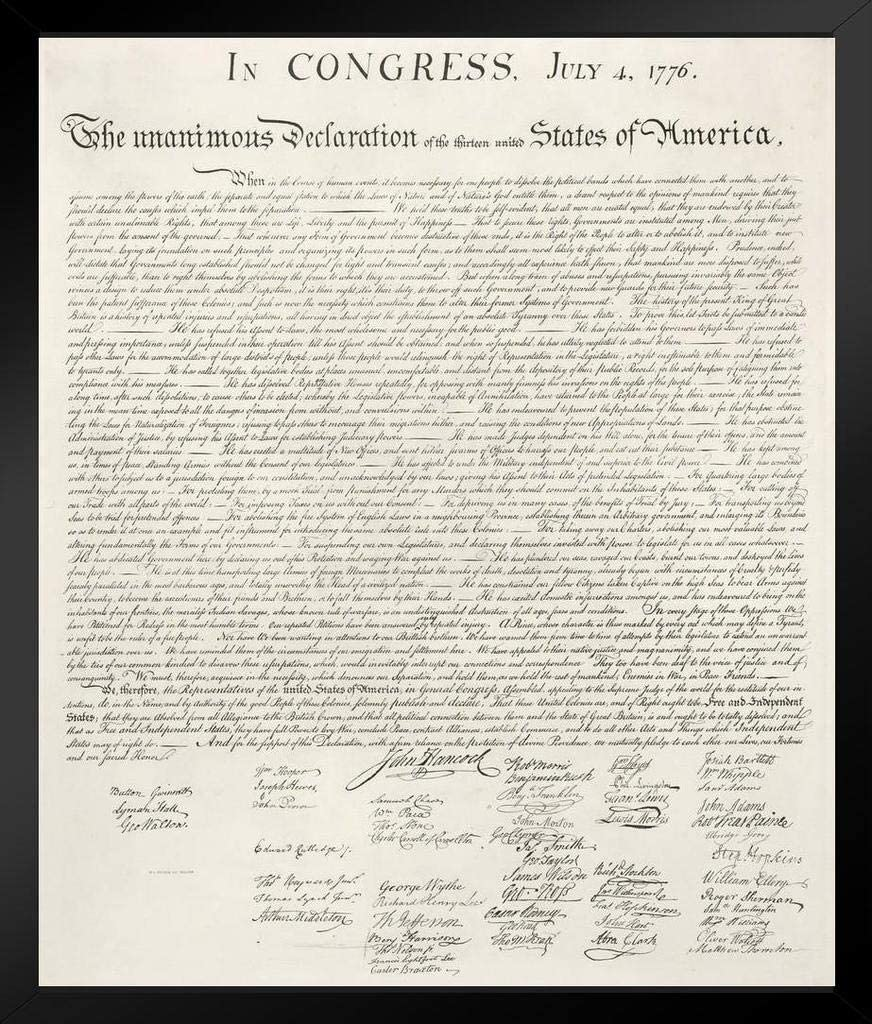 IN CONGRESS, JULY 4, 1776.
The unanimous Declaration of the thirteen united States of America,
When in the Course of human events, it becomes necessary for one people to dissolve the political bands which have connected them with another, and to
assume among the powers of the earth, the separate and equal station to which the Laws of Nature and of Nature's God entitle them, a decent respect to the opinions of mankind requires that they
should declare the causes which impel them to the separation. — We hold these truths to be self-evident, that all men are created equal, that they are endowed by their Creator
with certain unalienable Rights, that among these are Life, Liberty and the pursuit of Happiness. — That to secure these rights, Governments are instituted among Men, deriving their just
powers from the consent of the governed, — That whenever any Form of Government becomes destructive of these ends, it is the Right of the People to alter or to abolish it, and to institute new
Government, laying its foundation on such principles and organizing its powers in such form, as to them shall seem most likely to effect their Safety and Happiness. Prudence, indeed,
will dictate that Governments long established should not be changed for light and transient causes; and accordingly all experience hath shewn, that mankind are more disposed to suffer, while
evils are sufferable, than to right themselves by abolishing the forms to which they are accustomed. But when a long train of abuses and usurpations, pursuing invariably the same Object
evinces a design to reduce them under absolute Despotism, it is their right, it is their duty, to throw off such Government, and to provide new Guards for their future security. — Such has
been the patient sufferance of these Colonies; and such is now the necessity which constrains them to alter their former Systems of Government. The history of the present King of Great
Britain is a history of repeated injuries and usurpations, all having in direct object the establishment of an absolute Tyranny over these States. To prove this, let Facts be submitted to a candid
world. — He has refused his Assent to Laws, the most wholesome and necessary for the public good. — He has forbidden his Governors to pass Laws of immediate
and pressing importance, unless suspended in their operation till his Assent should be obtained; and when so suspended, he has utterly neglected to attend to them. — He has refused to
pass other Laws for the accommodation of large districts of people, unless those people would relinquish the right of Representation in the Legislature, a right inestimable to them and formidable
to tyrants only. — He has called together legislative bodies at places unusual, uncomfortable, and distant from the depository of their public Records, for the sole purpose of fatiguing them into
compliance with his measures. — He has dissolved Representative Houses repeatedly, for opposing with manly firmness his invasions on the rights of the people. — He has refused for
a long time, after such dissolutions, to cause others to be elected; whereby the Legislative powers, incapable of Annihilation, have returned to the People at large for their exercise; the State remain-
ing in the mean time exposed to all the dangers of invasion from without, and convulsions within. — He has endeavoured to prevent the population of these States; for that purpose obstruc-
ting the Laws for Naturalization of Foreigners; refusing to pass others to encourage their migrations hither, and raising the conditions of new Appropriations of Lands. — He has obstructed the
Administration of Justice, by refusing his Assent to Laws for establishing Judiciary powers. — He has made Judges dependent on his Will alone, for the tenure of their offices, and the amount
and payment of their salaries. — He has erected a multitude of New Offices, and sent hither swarms of Officers to harrass our people, and eat out their substance. — He has kept among
us, in times of peace, Standing Armies without the Consent of our legislatures. — He has affected to render the Military independent of and superior to the Civil power. — He has combined
with others to subject us to a jurisdiction foreign to our constitution, and unacknowledged by our laws; giving his Assent to their Acts of pretended Legislation: — For Quartering large bodies of
armed troops among us: — For protecting them, by a mock Trial, from punishment for any Murders which they should commit on the Inhabitants of these States: — For cutting off
our Trade with all parts of the world: — For imposing Taxes on us without our Consent: — For depriving us in many cases, of the benefits of Trial by Jury: — For transporting us beyond
Seas to be tried for pretended offences: — For abolishing the free System of English Laws in a neighbouring Province, establishing therein an Arbitrary government, and enlarging its Boundaries
so as to render it at once an example and fit instrument for introducing the same absolute rule into these Colonies: — For taking away our Charters, abolishing our most valuable Laws, and
altering fundamentally the Forms of our Governments: — For suspending our own Legislatures, and declaring themselves invested with power to legislate for us in all cases whatsoever. —
He has abdicated Government here, by declaring us out of his Protection and waging War against us. — He has plundered our seas, ravaged our Coasts, burnt our towns, and destroyed the lives
of our people. — He is at this time transporting large Armies of foreign Mercenaries to compleat the works of death, desolation and tyranny, already begun with circumstances of Cruelty & perfidy
scarcely paralleled in the most barbarous ages, and totally unworthy the Head of a civilized nation. — He has constrained our fellow Citizens taken Captive on the high Seas to bear Arms against
their Country, to become the executioners of their friends and Brethren, or to fall themselves by their Hands. — He has excited domestic insurrections amongst us, and has endeavoured to bring on the
inhabitants of our frontiers, the merciless Indian Savages, whose known rule of warfare, is an undistinguished destruction of all ages, sexes and conditions. In every stage of these Oppressions We
have Petitioned for Redress in the most humble terms: Our repeated Petitions have been answered only by repeated injury. A Prince, whose character is thus marked by every act which may define a Tyrant,
is unfit to be the ruler of a free people. Nor have We been wanting in attentions to our Brittish brethren. We have warned them from time to time of attempts by their legislature to extend an unwarrant-
able jurisdiction over us. We have reminded them of the circumstances of our emigration and settlement here. We have appealed to their native justice and magnanimity, and we have conjured them
by the ties of our common kindred to disavow these usurpations, which, would inevitably interrupt our connections and correspondence. They too have been deaf to the voice of justice and of
consanguinity. We must, therefore, acquiesce in the necessity, which denounces our Separation, and hold them, as we hold the rest of mankind, Enemies in War, in Peace Friends. —
We, therefore, the Representatives of the united States of America, in General Congress, Assembled, appealing to the Supreme Judge of the world for the rectitude of our in-
tentions, do, in the Name, and by authority of the good People of these Colonies, solemnly publish and declare, That these United Colonies are, and of Right ought to be Free and Independent
States; that they are Absolved from all Allegiance to the British Crown, and that all political connection between them and the State of Great Britain, is and ought to be totally dissolved; and
that as Free and Independent States, they have full Power to levy War, conclude Peace, contract Alliances, establish Commerce, and to do all other Acts and Things which Independent
States may of right do. — And for the support of this Declaration, with a firm reliance on the Protection of divine Providence, we mutually pledge to each other our Lives, our Fortunes
and our sacred Honor.
Button Gwinnett
Lyman Hall
Geo Walton.
Wm Hooper
Joseph Hewes,
John Penn
Edward Rutledge /.
Thos Heyward Junr.
Thomas Lynch Junr.
Arthur Middleton
John Hancock
Samuel Chase
Wm Paca
Thos Stone
Charles Carroll of Carrollton
George Wythe
Richard Henry Lee
Th Jefferson
Benj Harrison
Thos Nelson jr.
Francis Lightfoot Lee
Carter Braxton
Robt Morris
Benjamin Rush
Benj Franklin
John Morton
Geo Clymer
Jas Smith
Geo Taylor
James Wilson
Geo. Ross
Caesar Rodney
Geo Read
Tho M:Kean
Wm Floyd
Phil. Livingston
Frans Lewis
Lewis Morris
Richd Stockton
Jno Witherspoon
Fras Hopkinson
John Hart
Abra Clark
Josiah Bartlett
Wm Whipple
Saml Adams
John Adams
Robt Treat Paine
Elbridge Gerry
Step. Hopkins
William Ellery
Roger Sherman
Saml Huntington
Wm Williams
Oliver Wolcott
Matthew Thornton